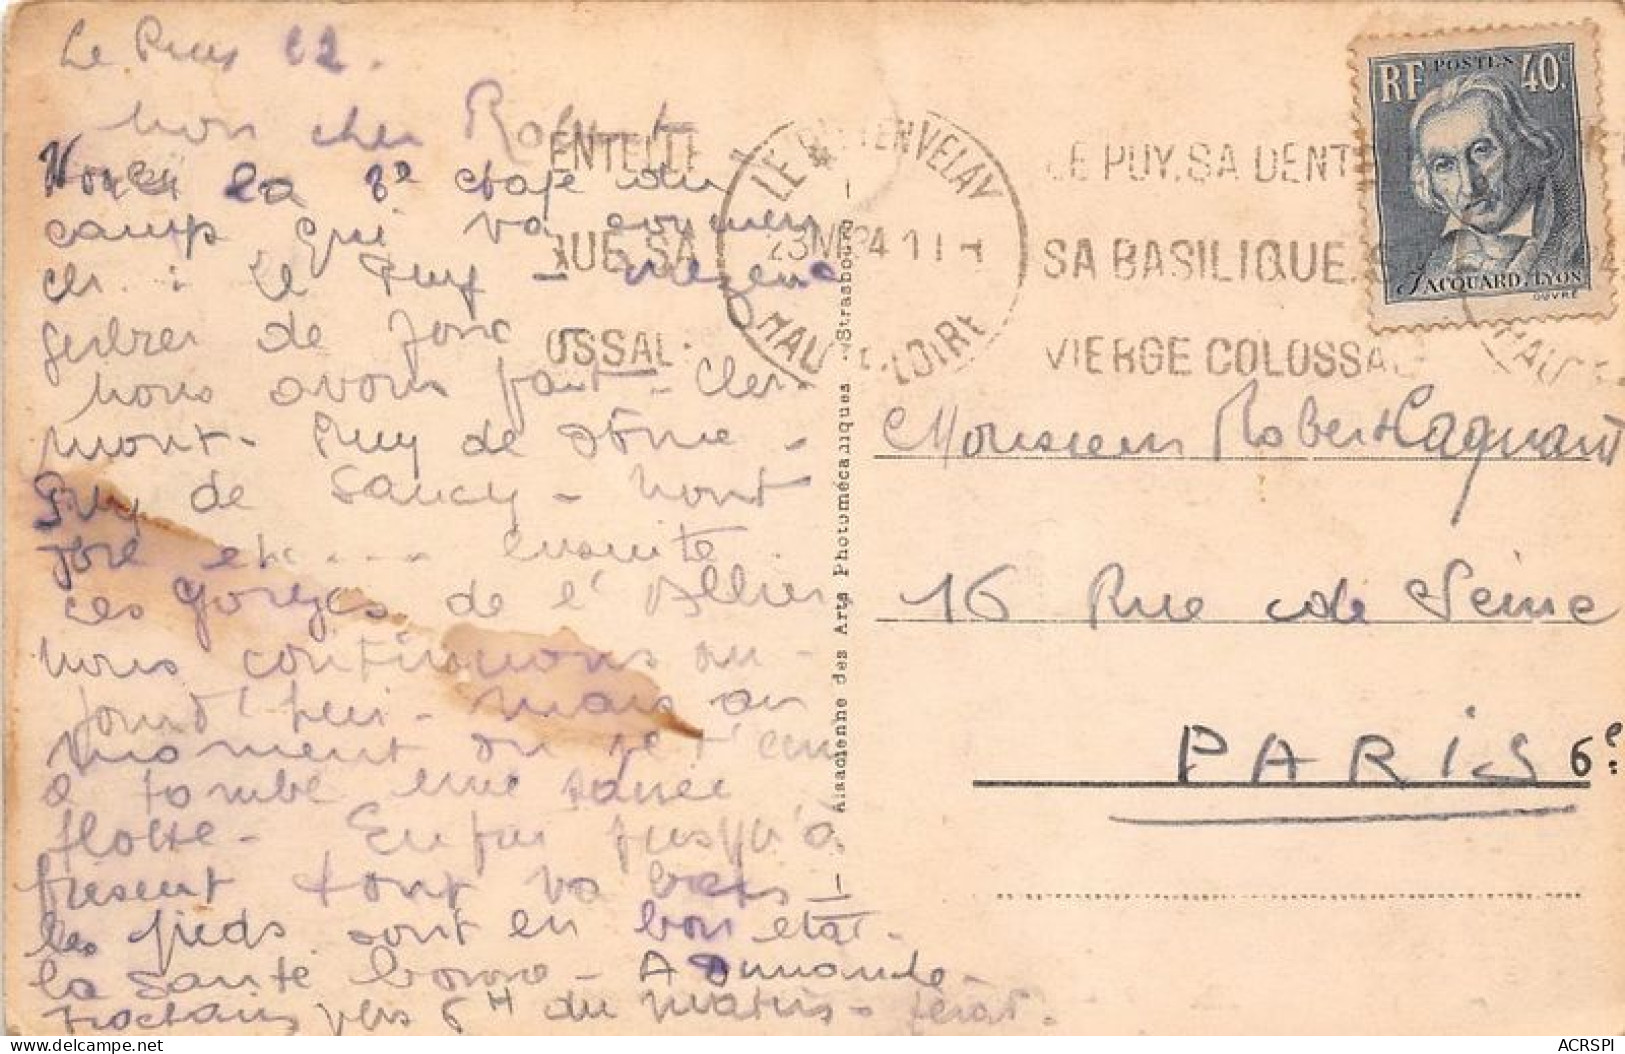 Le Puy 22.
mon cher Robert
Voici la 2e etape du
camp qui va commen
cer : Le Puy - mezenc
gerbier de Jonc
nous avons fait - Cler
mont - Puy de Dôme -
Puy de Sancy - mont
Dore etc .... ensuite
les gorges de l'Allier
nous continuons au-
jourd'hui - mais au
moment
a tombé une sauce
flotte - Enfin jusqu'à
present tout va bien
les pieds sont en bon etat -
la santé bonne - A Dimanche -
prochain vers 6H du matin -
ENTELLE
QUE. SA
OSSAL.
LE PUY EN VELAY
23 VII 34 11
HAUTE-LOIRE
LE PUY. SA DENT
SA BASILIQUE. S
VIERGE COLOSSAL
RF POSTES 40c
JACQUARD. LYON
OUVRÉ
Alsacienne des Arts Photomécaniques - Strasbourg
Monsieur Robert Cagnant
16 Rue de Seine
PARIS 6e
ACRSPI